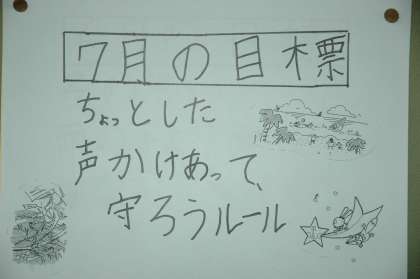 7月の目標
ちょっとした
声かけあって、
守ろうルール